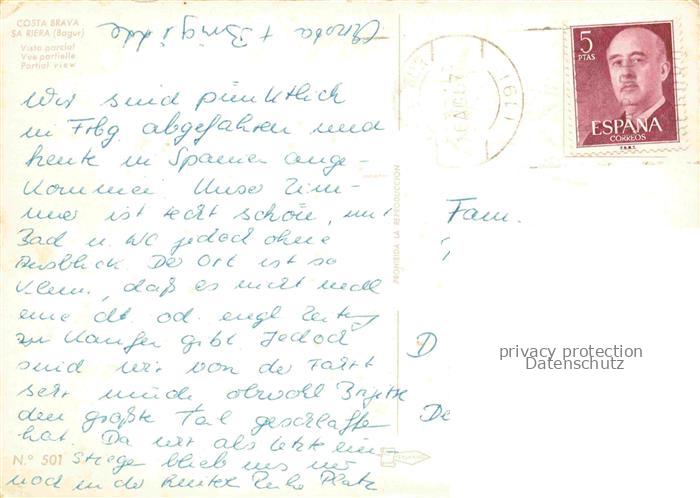 COSTA BRAVA
SA RIERA (Bagur)
Vista parcial
Vue partielle
Partial view
Wir sind pünktlich
in Frbg. abgefahren und
heute in Spanien ange-
kommen. Unser Zim-
mer ist recht schön, mit
Bad u. WC jedoch ohne
Ausblick. Der Ort ist so
klein, daß es nicht mal
eine dt. od. engl. Zeitung
zu kaufen gibt. Jedoch
sind wir von der Fahrt
sehr müde obwohl Brigitte
den größten Teil geschlafen
hat. Da wir als letzte ein-
stiegen blieb uns nur
noch in der hinteren Reihe Platz
+ Brigitte
N.º 501
PROHIBIDA LA REPRODUCCION
5
PTAS
ESPAÑA
CORREOS
F.N.M.T.
Fam.
D
De
privacy protection
Datenschutz